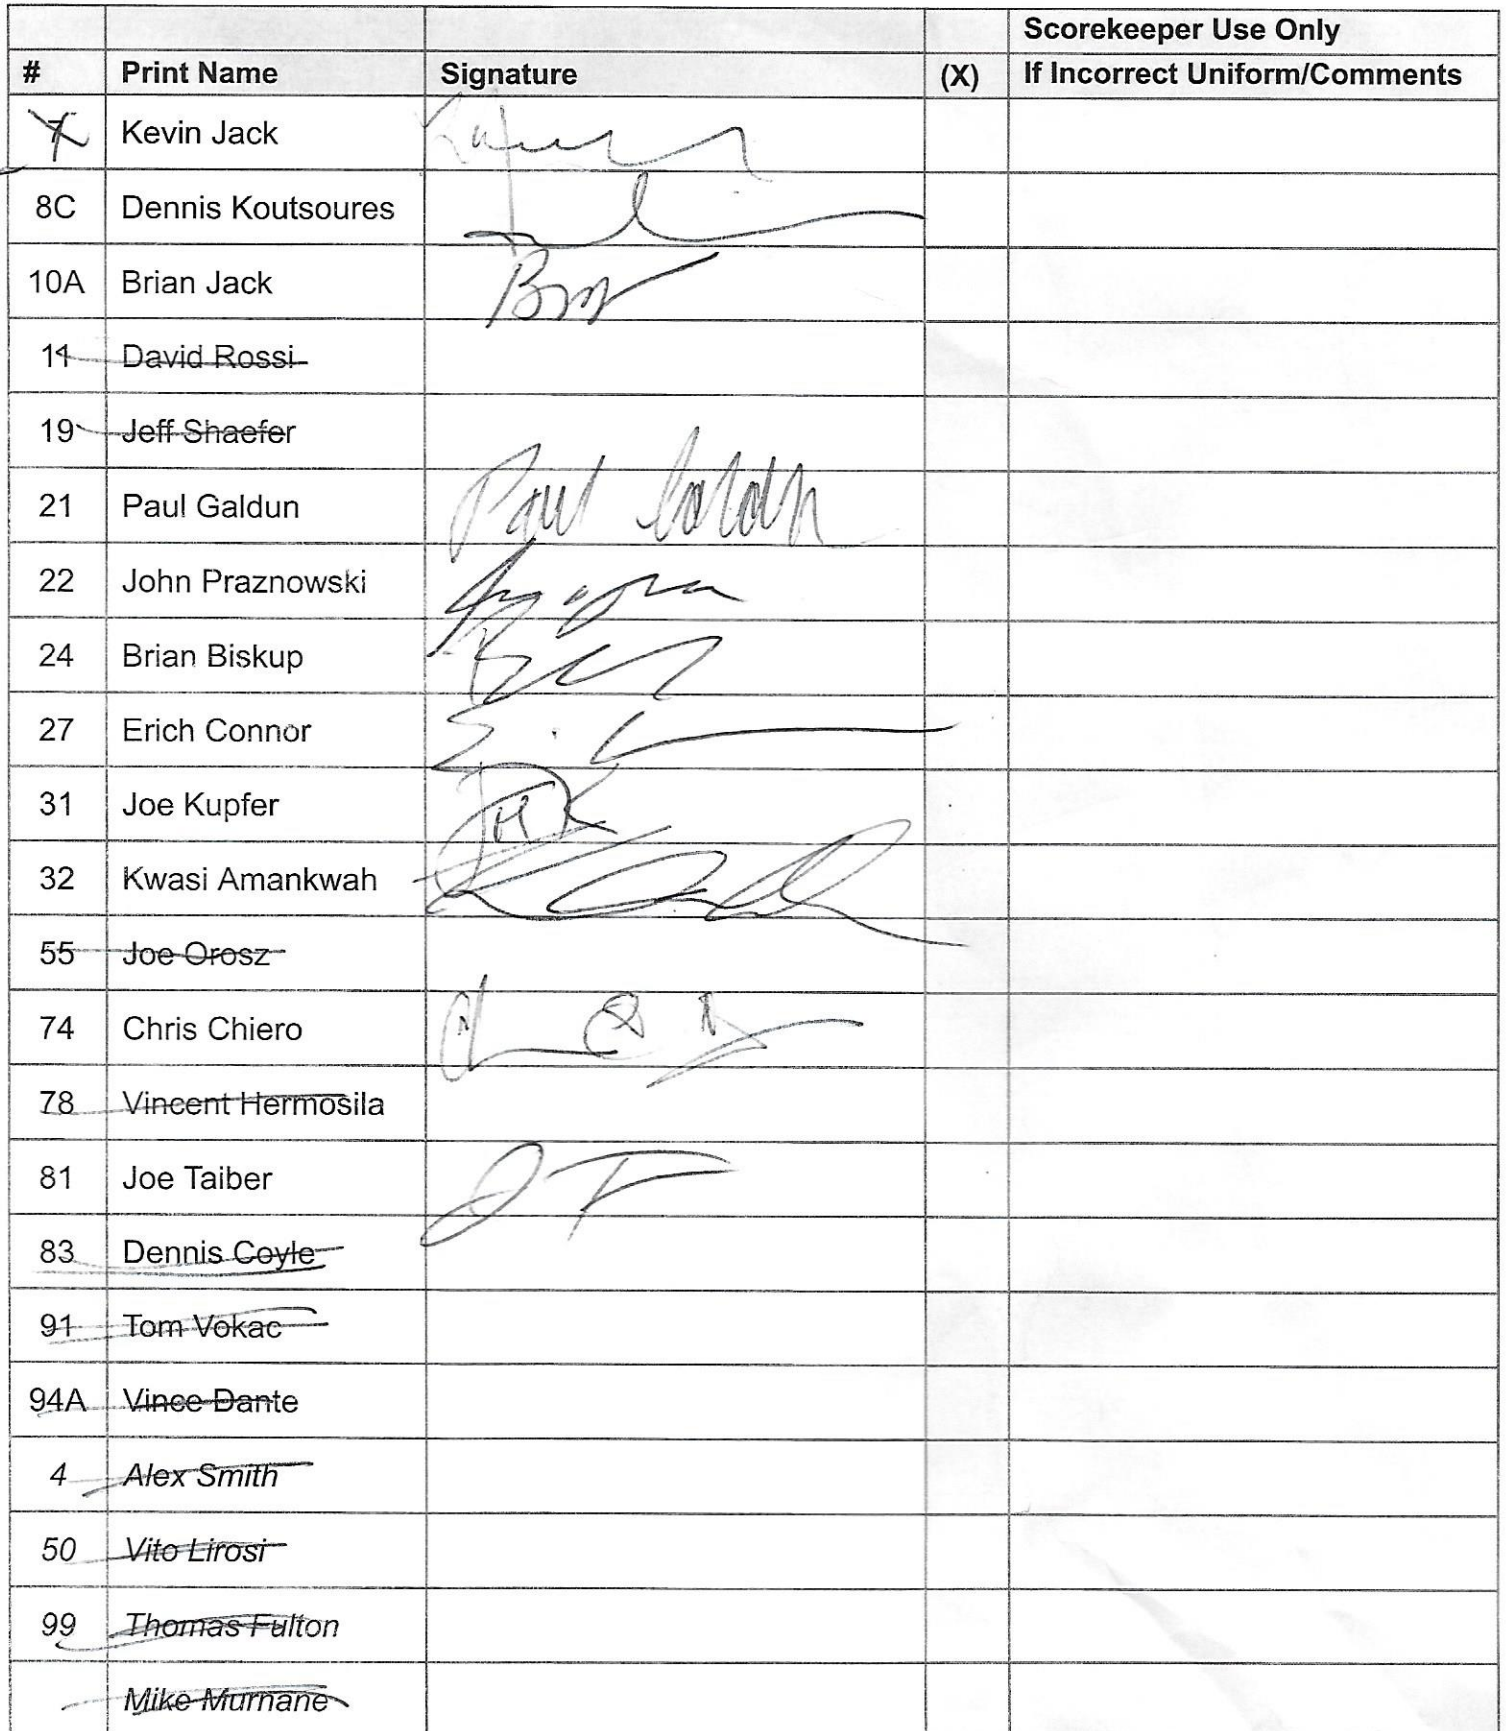 Scorekeeper Use Only
# Print Name Signature (X) If Incorrect Uniform/Comments
7 Kevin Jack
8C Dennis Koutsoures
10A Brian Jack
11 David Rossi
19 Jeff Shaefer
21 Paul Galdun Paul Galdun
22 John Praznowski
24 Brian Biskup
27 Erich Connor
31 Joe Kupfer
32 Kwasi Amankwah
55 Joe Orosz
74 Chris Chiero
78 Vincent Hermosila
81 Joe Taiber JT
83 Dennis Coyle
91 Tom Vokac
94A Vince Dante
4 Alex Smith
50 Vito Lirosi
99 Thomas Fulton
Mike Murnane